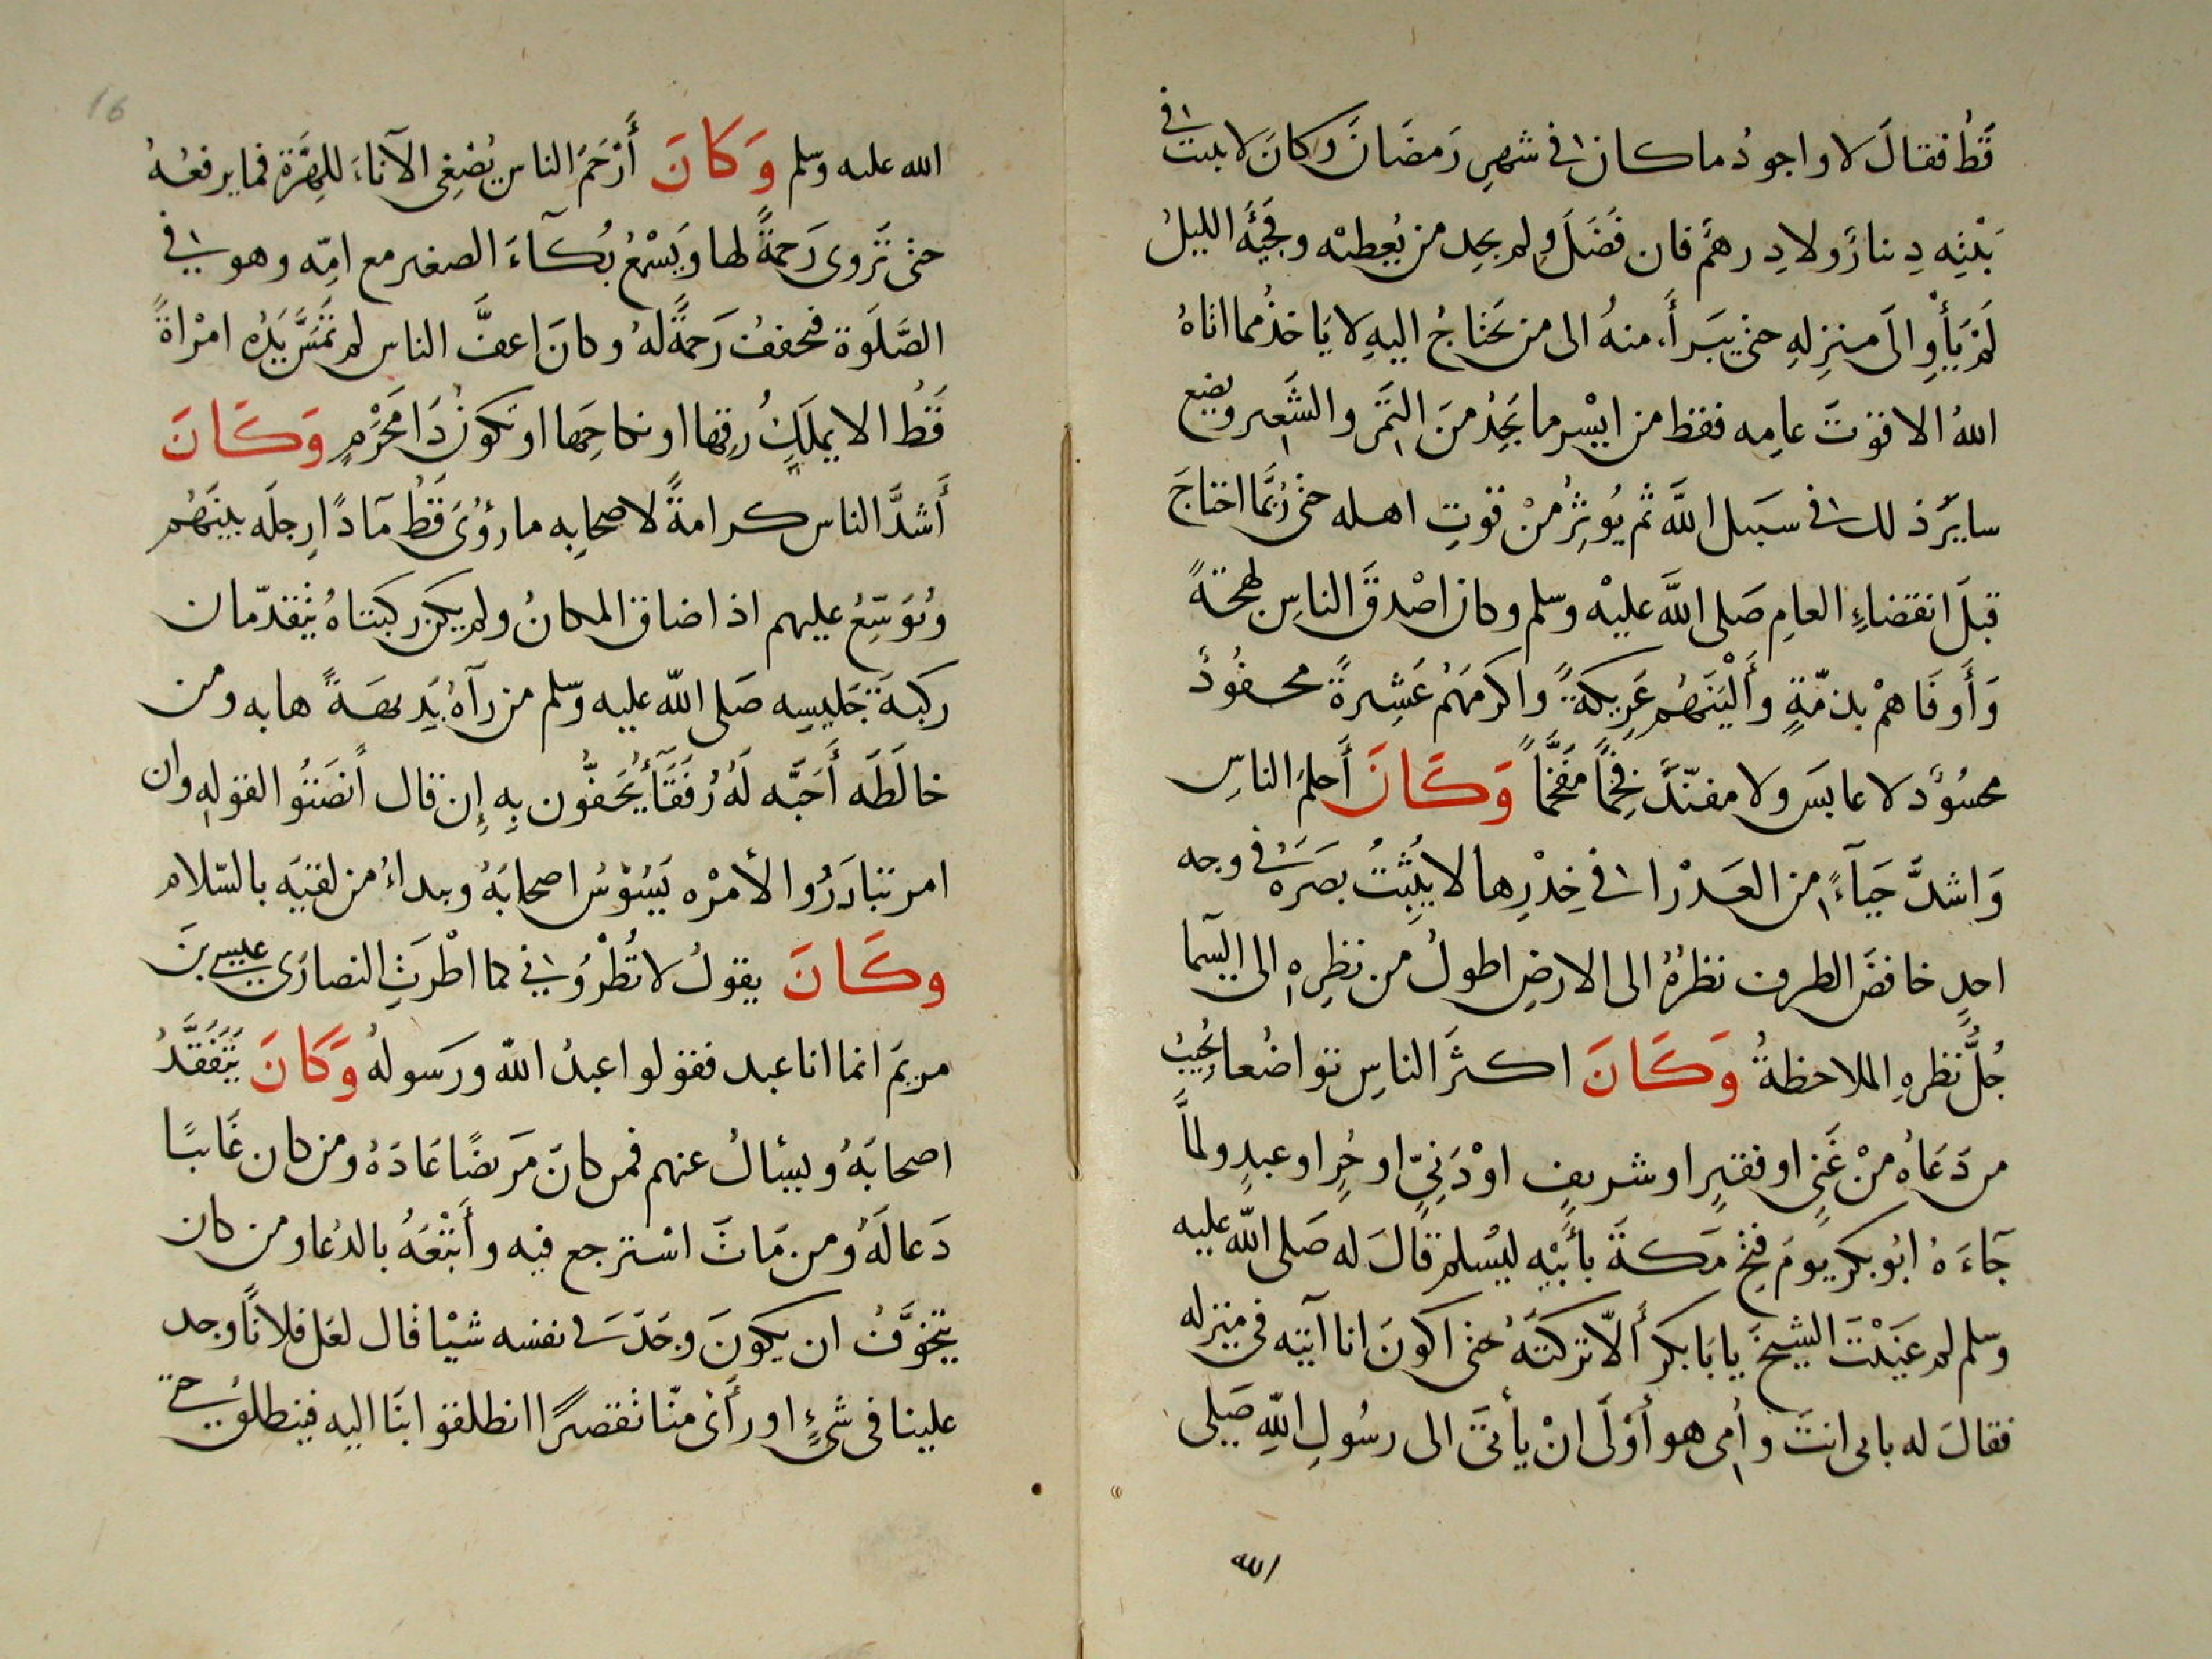 قَطُ فقالَ لا واجودُ ما كان في شهرِ رَمضَانَ وكانَ لا يبيت في
بَيْتِه دِينارٌ ولا دِرهمٌ فان فَضَلَ ولم يجد من يُعطيه وفَجِئَهُ الليلُ
لَمْ يَأوِ الىَ منزِلهِ حتى يبَرأَ منهُ الى من يَحتَاجُ اليهِ لا يَاخذُ مما اتاهُ
اللهُ الا قوتَ عامِه فقط من ايسْر ما يَجدُ منَ التمَر والشَعير ويضع
سايرَ ذلك في سَبيل اللَّه ثم يُوثِرُ منْ قوتِ اهله حتى رُبَّما احتاجَ
قبلَ انقضاءِ العامِ صَلى اللَّه عليْه وسلم وكان اصْدقَ الناسِ لهجةً
وَأَوفَاهمْ بذمّةٍ وأَلْيَنَهُم عَرِيكةً واكرمَهُم عَشِرةً محفُودٌ
محسُودٌ لا عابسَ ولا مفنّدَ فخِمًا مفَخَّمًا وَكَانَ أَحلمَ الناسِ
وَاشدَّ حَيآءً من العَذْرا في خِدْرِها لا يُثبِتُ بصَرَهُ في وجه
احدٍ خافضَ الطرف نظرُهُ الى الارضِ اطولُ من نظرِه الى السما
جُلُّ نظرهِ الملاحظةُ وَكَانَ اكثرَ الناسِ تواضُعا يُجيبُ
من دَعَاهُ منْ غَنِي او فقيرٍ او شريفٍ اوْ دَنِيّ او حُرٍ او عبدٍ ولمَّا
جَآءَهُ ابُو بكر يومَ فتح مَكةَ بأَبيْهِ ليُسْلم قالَ له صَلى اللّه عليه
وسلم لم عَنَّيْتَ الشيخَ يابَا بكر أَلّا تركتَهُ حتى اكونَ انا آتيه في منزله
فقالَ له بابي انتَ وامي هو أوْلَى انْ يأتىَ الى رسُولِ اللّهِ صَلى
الله
16
الله عليه وسلم وَكَانَ أَرْحَمَ الناس يُصْغِي الآنَاءَ للهِرَّة فما يرفعهُ
حتى تَروى رَحمةً لها وَيَسْمعُ بُكآءَ الصغير مع امِّه وهو في
الصَّلَوة فيخففُ رَحمةً لهُ وكانَ اعفَّ الناس لم تَمَسَّ يَدُه امْرَاةً
قَطُ الا يملكُ رِقها او نكاحَها او تكونُ ذَا مَحْرمٍ وَكَانَ
أَشدَّ الناس كرامةً لاصحابِه ما رؤىَ قَطُ مآدًا رِجلَه بينَهُم
ويُوَسِّعُ عليهم اذا ضاق المكانُ ولم يكن ركبتاهُ يتقدّمان
ركبةَ جَليسِه صَلى اللّه عليه وسلم من رآهُ بَدِيهَةً هابه ومن
خالَطَه أَحَبَّه لَهُ رُفَقَآءُ يَحُفُّون بِهِ إِن قال أَنصَتُوا لقوله وان
امر تبادَرُوا لأمرْه يَسُوْسُ اصحابَهُ ويبداءُ من لقيَه بالسّلام
وكَانَ يقولُ لا تُطْرُوني كما اطْرتِ النصارَى عيسى بنَ
مريمَ انما انا عبد فقولوا عبدُ اللّه ورَسولهُ وَكَانَ يَتَفَقَّدُ
اصحابَهُ ويسئالُ عنهم فمن كانَ مَريضًا عَادَهُ ومن كان غَايبًا
دَعا لَهُ ومن مَاتَ اسْترجع فيه وأَتْبَعَهُ بالدُعا ومن كان
يتخوَّفُ ان يكونَ وجَدَ في نفسه شيْا قال لعَل فلانًا وجد
علينا في شيءٍ او رأَى منّا تقصيرًا انطلقوا بنَا اليه فينطلقُ حتى